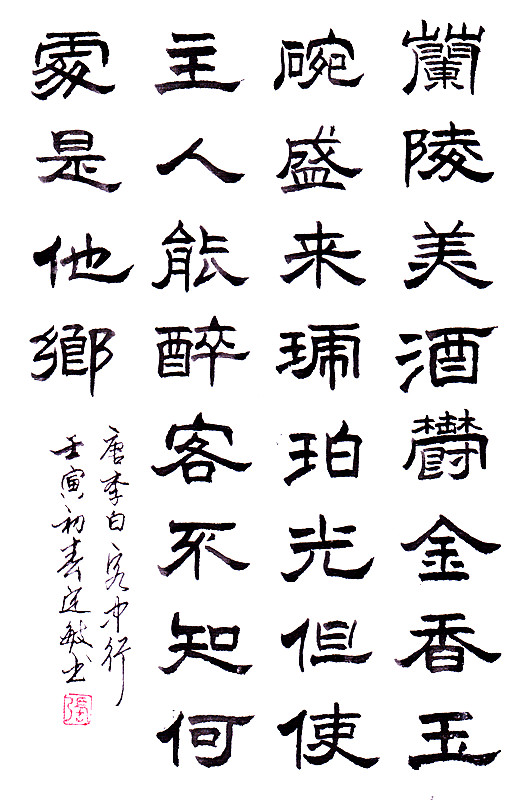 蘭陵美酒欝金香玉
碗盛来琥珀光但使
主人能醉客不知何
處是他鄉
唐李白客中行
壬寅初春定敏书
張